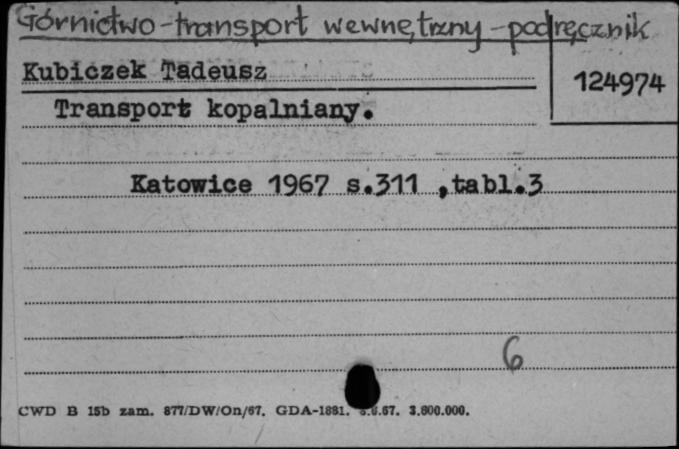 Górnictwo-transport wewnętrzny-podręcznik
Kubiczek Tadeusz
124974
Transport kopalniany.
Katowice 1967 s.311 ,tabl.3
6
CWD B 15b zam. 877/DW/On/67. GDA-1881. 3.6.67. 3.800.000.